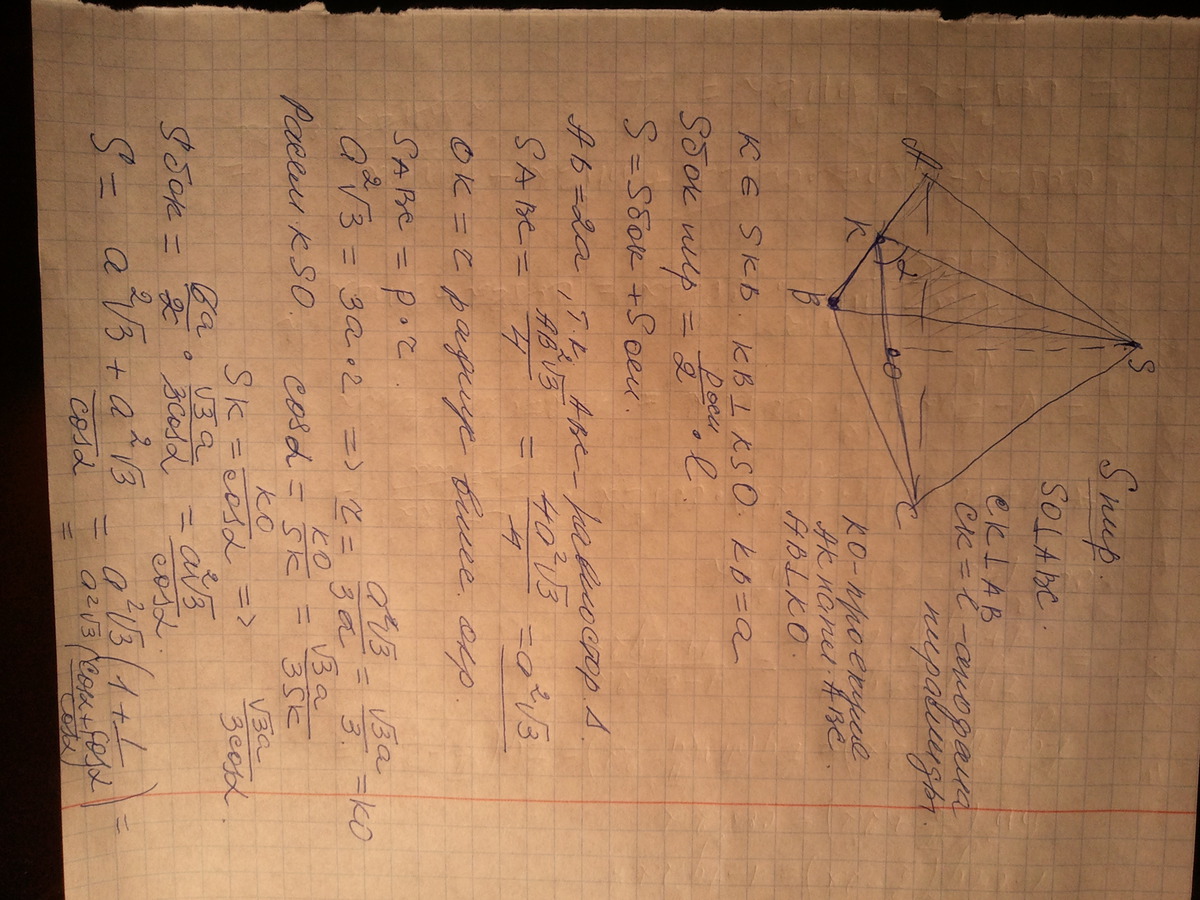 S
A
K
α
B
O
C
Sпир.
SO⊥ABC.
CK⊥AB
CK=l - апофема
пирамиды.
KO-проекция
AK на пл. ABC.
AB⊥KO.
K∈ SKB. KB⊥KSO. KB=a
Sбок пир = Pосн/2 · l.
S=Sбок+Sосн.
AB=2a, т.к ABC - равностор. Δ.
SABC = AB²√3/4 = 4a²√3/4 = a²√3
OK = r радиус впис. окр.
SABC = p·r.
a²√3 = 3a·r => r = a²√3/3a = √3a/3. = KO
Рассм. KSO. cosα = KO/SK = √3a/3SK
SK = KO/cosα => √3a/3cosα.
Sбок = 6a/2 · √3a/3cosα = a²√3/cosα.
S = a²√3 + a²√3/cosα = a²√3(1+1/cosα) =
= a²√3(cosα+cosα/cosα)